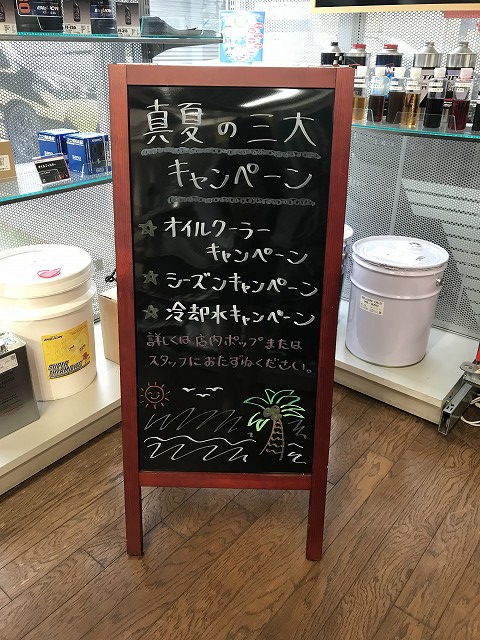 真夏の三大
キャンペーン
☆オイルクーラー
キャンペーン
☆シーズンキャンペーン
☆冷却水キャンペーン
詳しくは店内ポップまたは
スタッフにおたずねください。
SUPER